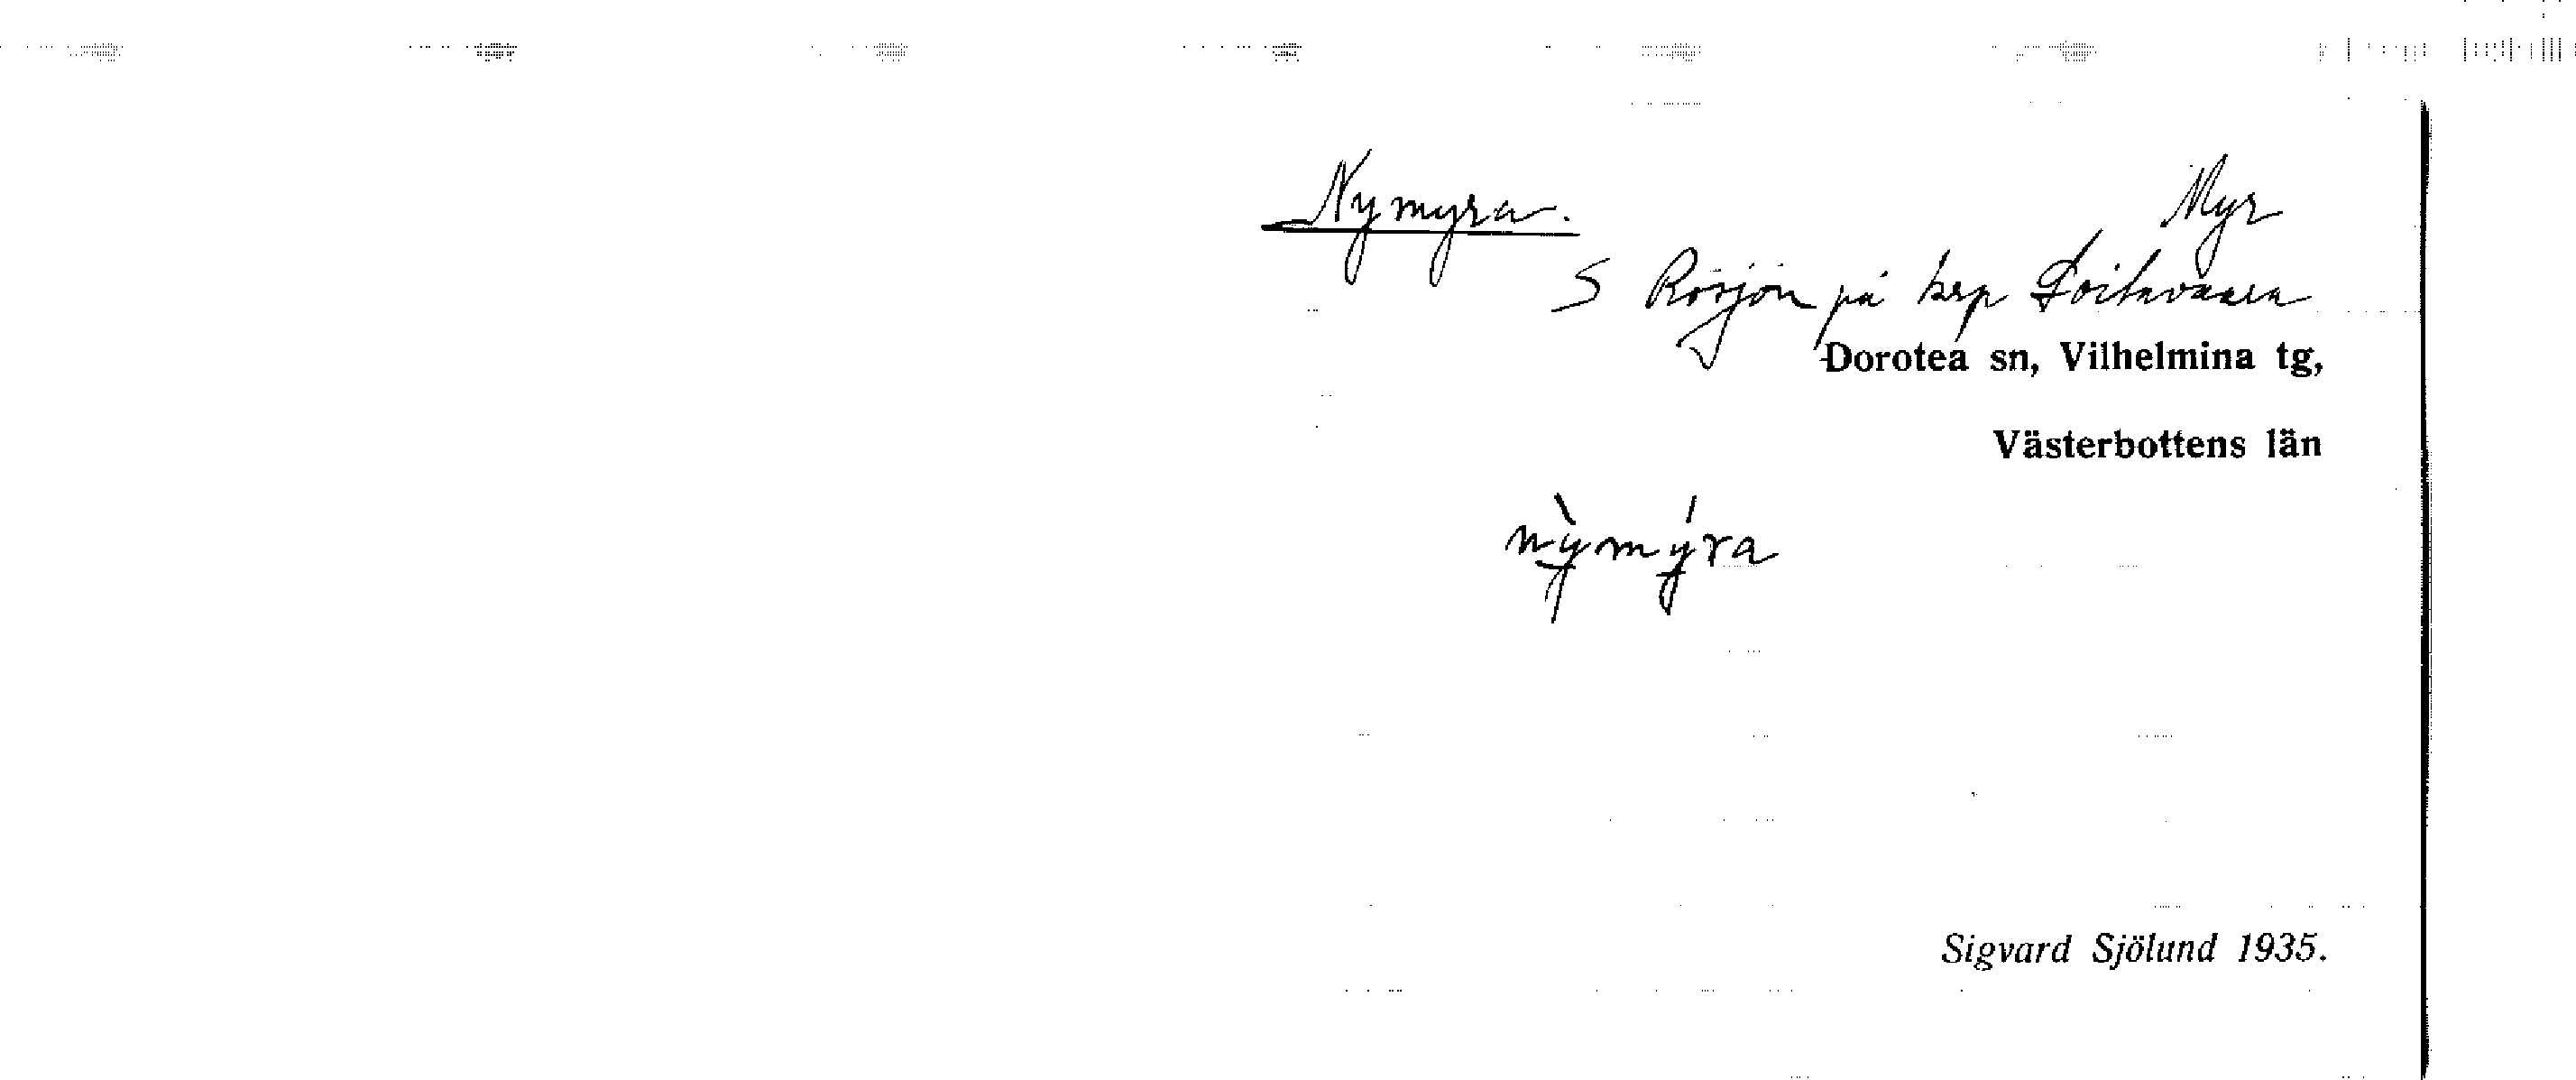 Nymyra. Myr
S Rösjön på krp Loitavaara
Dorotea sn, Vilhelmina tg,
Västerbottens län
nỳmýra
Sigvard Sjölund 1935.